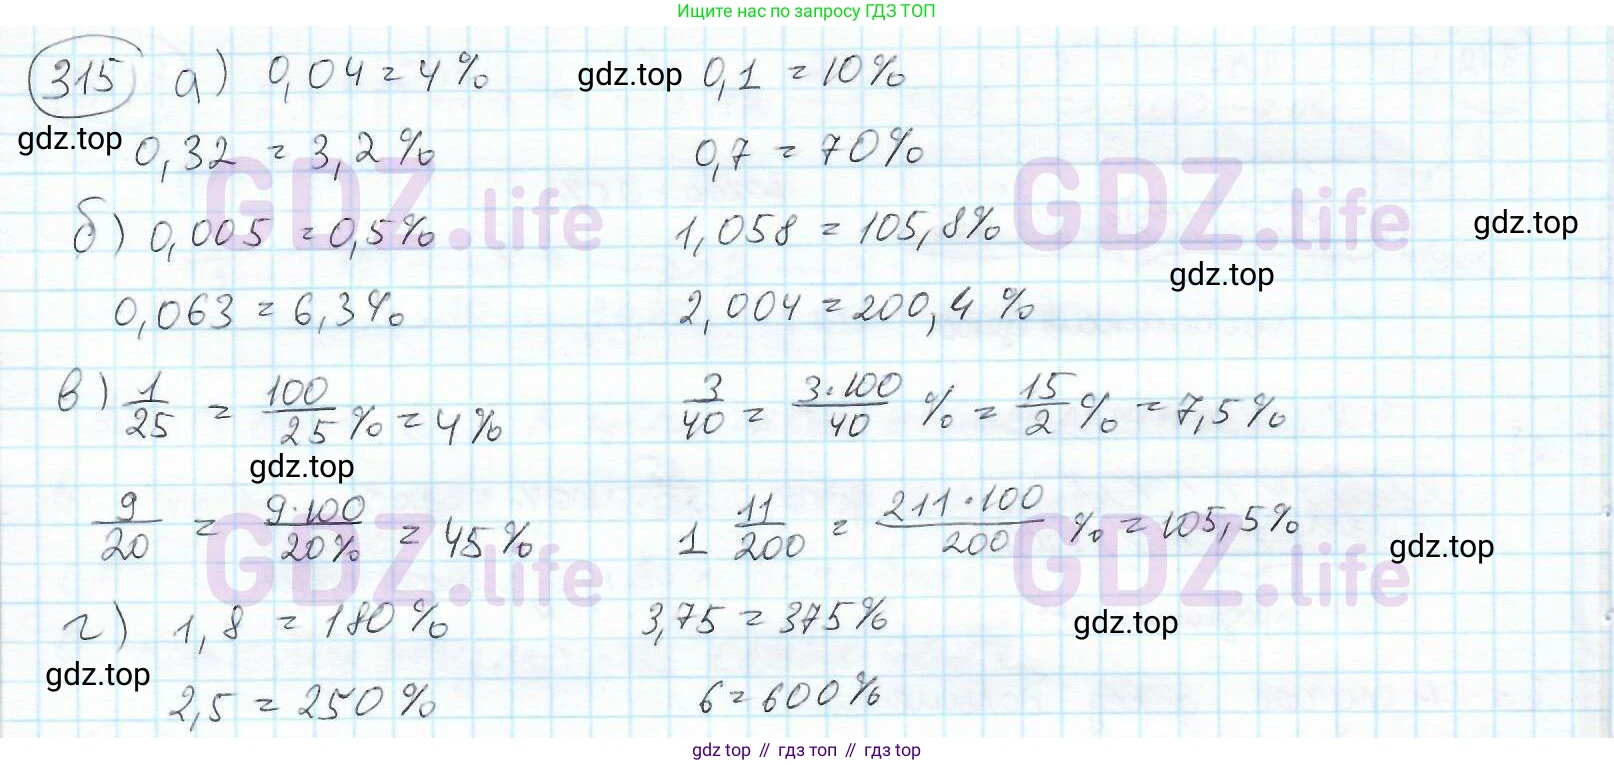 Ищите нас по запросу ГДЗ ТОП
315 а) 0,04 = 4% gdz.top 0,1 = 10%
gdz.top 0,32 = 3,2% 0,7 = 70%
GDZ.life GDZ.life
б) 0,005 = 0,5% 1,058 = 105,8% gdz.top
gdz.top
0,063 = 6,3% 2,004 = 200,4%
в) 1/25 = 100/25 % = 4% 3/40 = 3·100/40 % = 15/2 % = 7,5%
gdz.top
9/20 = 9·100/20% = 45% 1 11/200 = 211·100/200 % = 105,5% gdz.top
GDZ.life GDZ.life
г) 1,8 = 180% 3,75 = 375% gdz.top
gdz.top
2,5 = 250% 6 = 600%
gdz top // гдз топ // гдз top